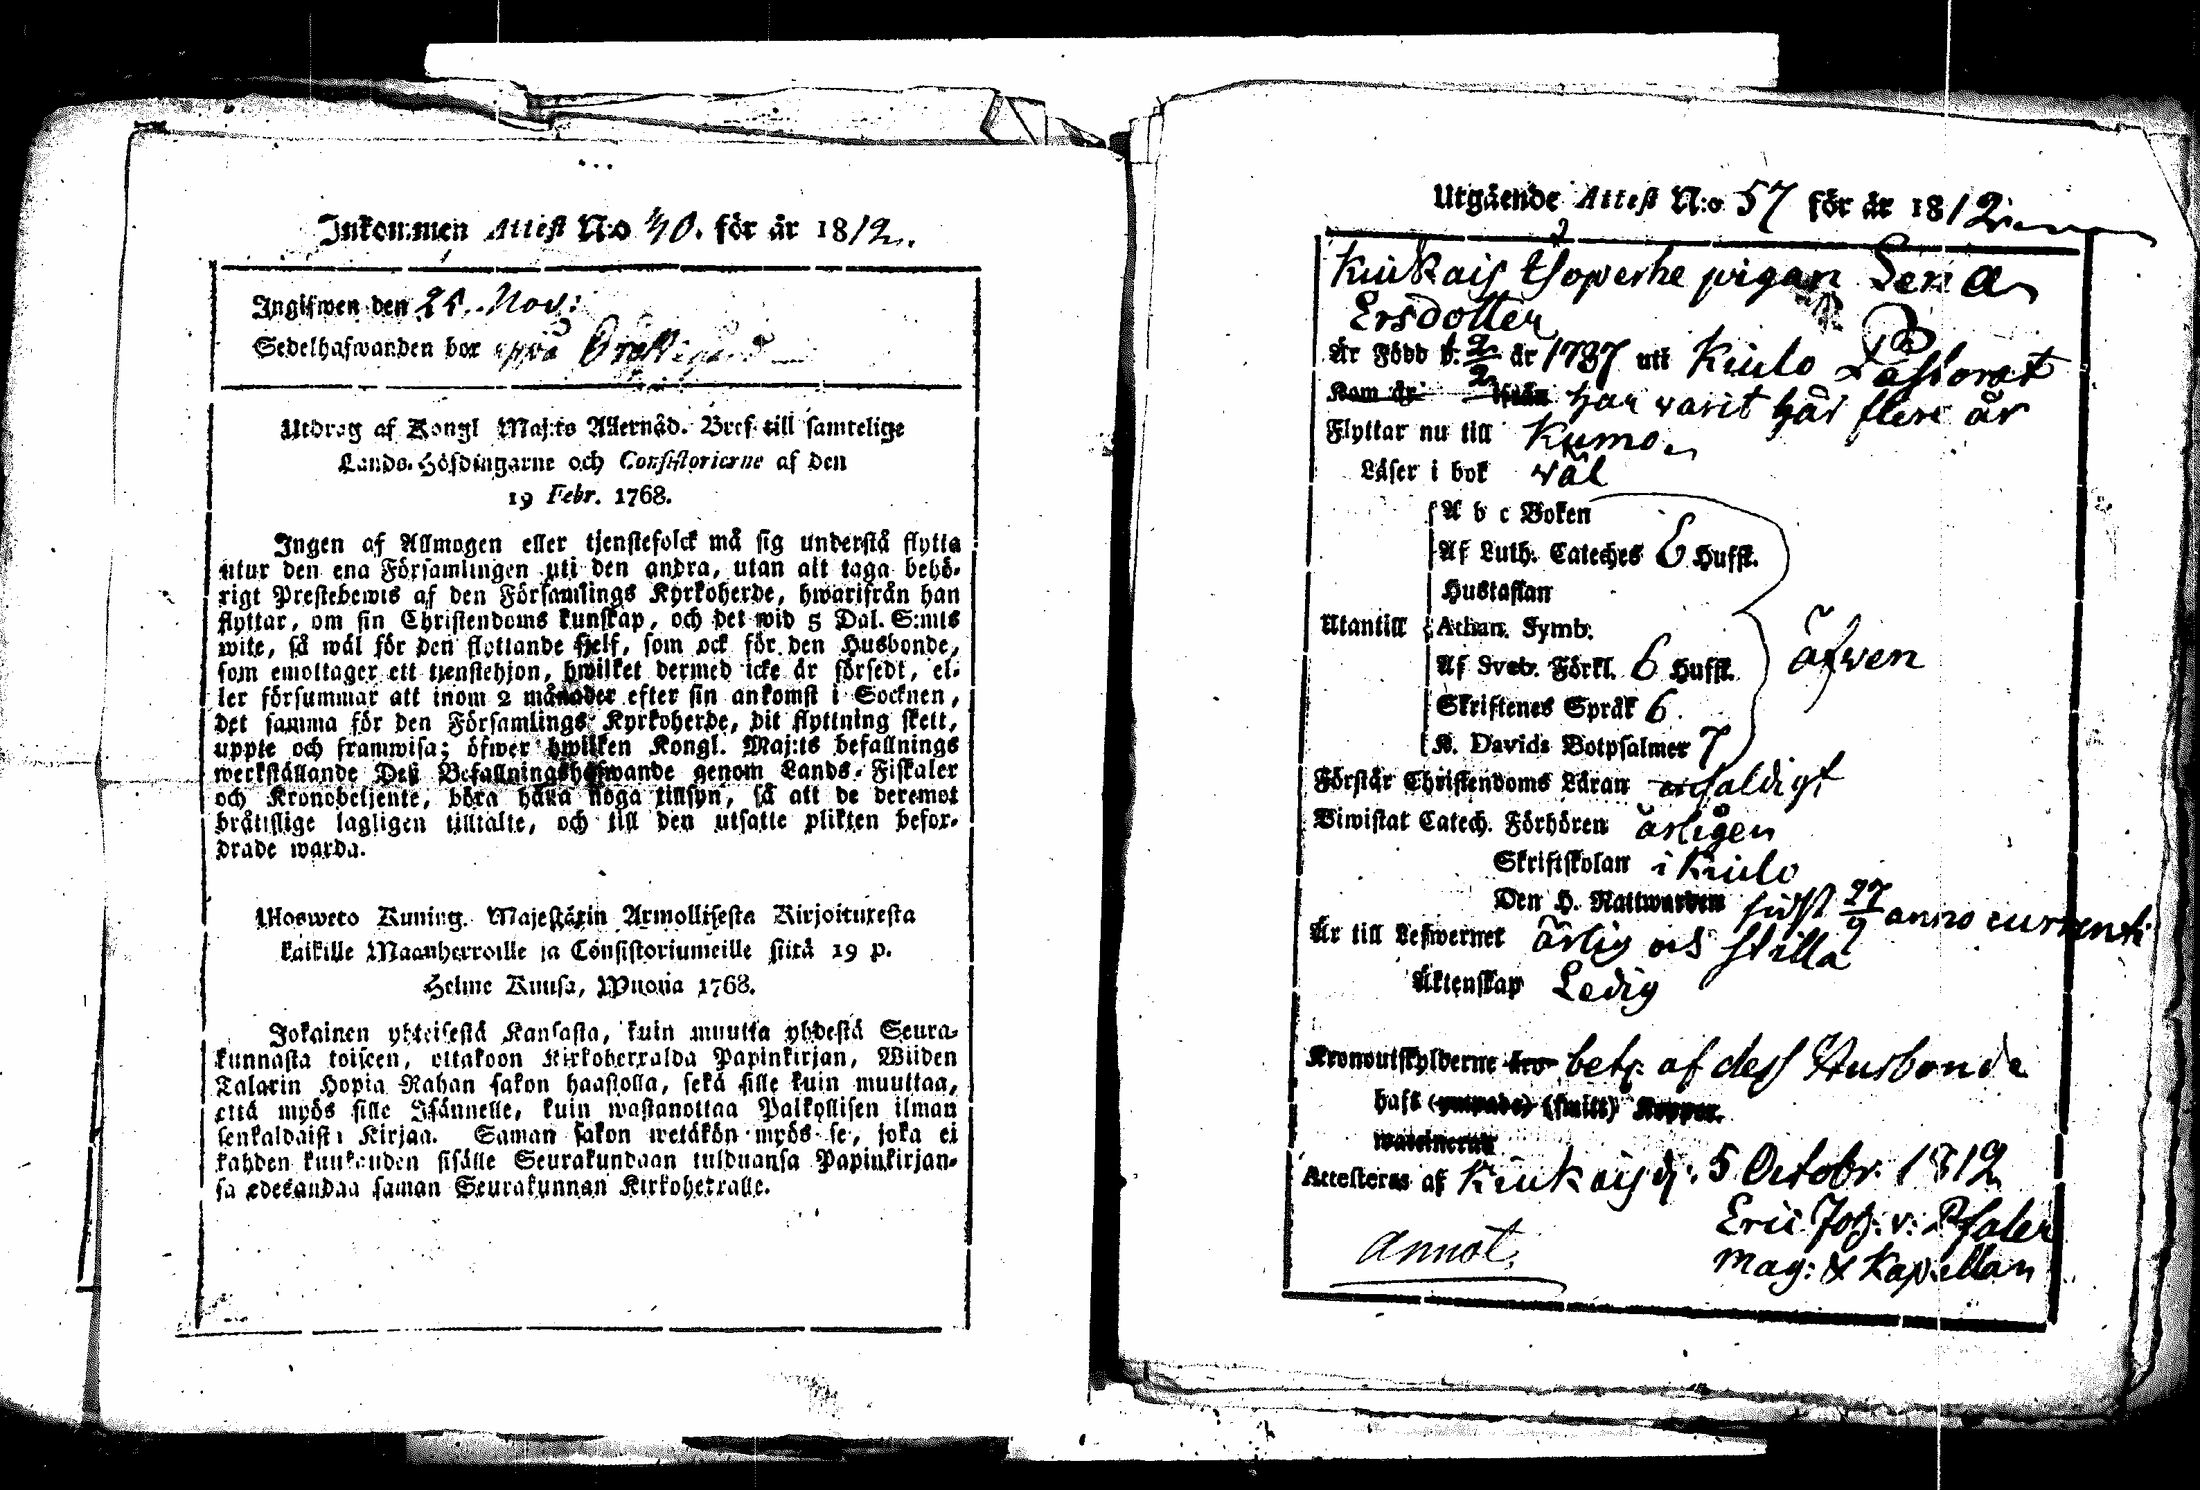 Inkommen Attest N:o 40. för år 1812.
Ingifwen den 25. Nov:
Sedelhafwanden bor uppå
Utdrag af Kongl Maj:ts Allernåd. Bref till samtelige
Lands-Höfdingarne och Consistorierne af den
19 Febr. 1768.
Ingen af Allmogen eller tjenstefolck må sig understå flytta
utur den ena Församlingen uti den andra, utan att taga behö-
rigt Prestebewis af den Församlings Kyrkoherde, hwarifrån han
flyttar, om sin Christendoms kunskap, och det wid 5 Dal. S:mts
wite, så wäl för den flyttande sjelf, som ock för den Husbonde,
som emottager ett tjenstehjon, hwilket dermed icke är försedt, el-
ler försummar att inom 2 månader efter sin ankomst i Socknen,
det samma för den Församlings Kyrkoherde, dit flyttning skett,
uppte och framwisa; öfwer hwilken Kongl. Maj:ts befallnings
werkställande Deß Befallningshafwande genom Lands-Fiskaler
och Kronobetjente, böra hafwa noga tillsyn, så att de deremot
bråttslige lagligen tilltalte, och till den utsatte plikten befor-
drade warda.
Ulosweto Kuning. Majestätin Armollisesta Kirjoituxesta
kaikille Maanherroille ja Consistoriumeille siitä 19 p.
Helme Kuusa, Wuonna 1768.
Jokainen yhteisestä Kansasta, kuin muutta yhdestä Seura-
kunnasta toiseen, ottakoon Kirkoherralda Papinkirjan, Wiiden
Talarin Hopia Rahan sakon haastolla, sekä sille kuin muuttaa,
että myös sille Isännelle, kuin wastanottaa Palkollisen ilman
senkaldaista Kirjaa. Saman sakon wetäkön myös se, joka ei
kahden kuukauden sisälle Seurakundaan tulduansa Papinkirjan-
sa edesandaa saman Seurakunnan Kirkoherralle.
Utgående Attest N:o 57 för år 1812
Kiukais pigan Lena
Ersdotter
Är Född d. 2/2 år 1787 uti Kiulo Pastorat
Kom år ifrån har varit här flere år
Flyttar nu till Kumo
Läser i bok väl
A b c Boken
Af Luth. Cateches 6 Hufst.
Hustaflan
Utantill Athan. Symb.
Af Sveb. Förkl. 6 Hufst. äfwen
Skriftenes Språk 6
K. Davids Botpsalmer 7
Förstår Christendoms Läran enfaldigt
Biwistat Catech. Förhören årligen
Skriftskolan i Kiulo
Den H. Nattwarden sidst 27/9 anno currenti
Är till Lefwernet ärlig och stilla
Äktenskap Ledig
Kronoutskylderne bet. af dess Husbonde
haft (smitt) Koppor.
waccinerad
Attesteras af Kiukais d: 5 Octobr. 1812
Eric Joh: v: Pfaler
Mag: & Kapellan
Annot.